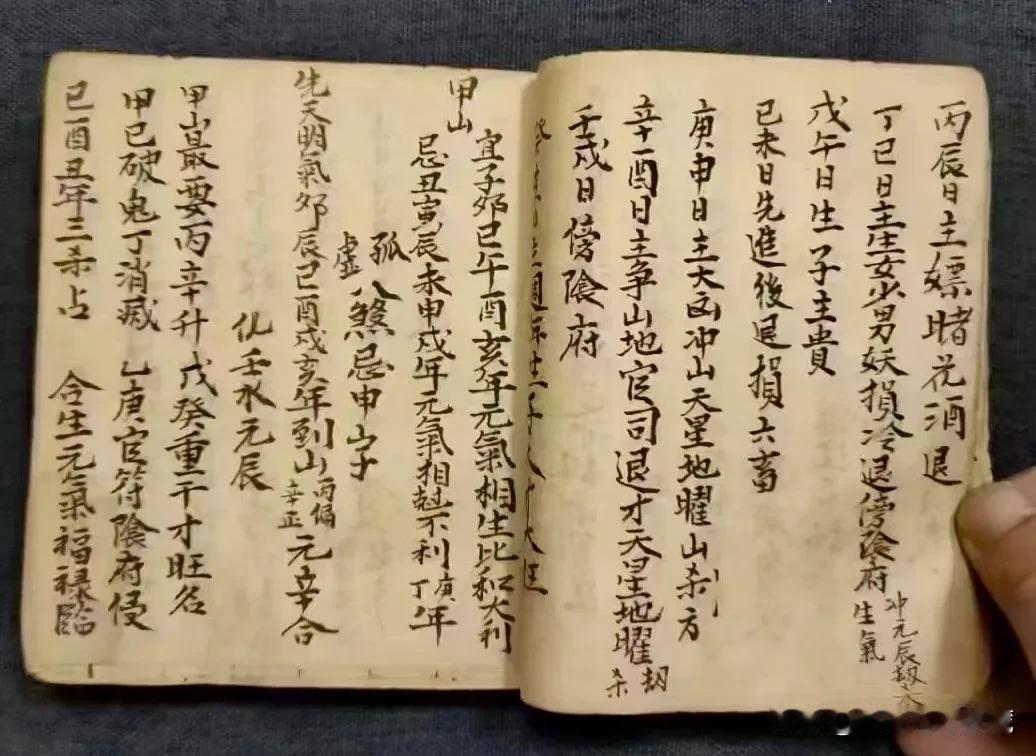 丙辰日主嫖賭花酒退
丁巳日主生女少男妖損冷退傍陰府生氣
冲元辰刼
戊午日生子主貴
己未日先進後退損六畜
庚申日主大凶冲山天星地曜山刹方
辛酉日主争山地官司退才天星地曜刼杀
壬戌日傍陰府
甲山
宜子夘巳午酉亥年元氣相生比和大利
忌丑寅辰未申戌年元氣相尅不利庚丁年
孤虛八煞忌申山子
先天明氣夘辰巳酉戌亥年到山丙偏辛正元辛合
化壬水元辰
甲山最要丙辛升戊癸重干才旺名
甲己破鬼丁消滅乙庚官符陰府侵
巳酉丑年三杀占合生元氣福禄臨